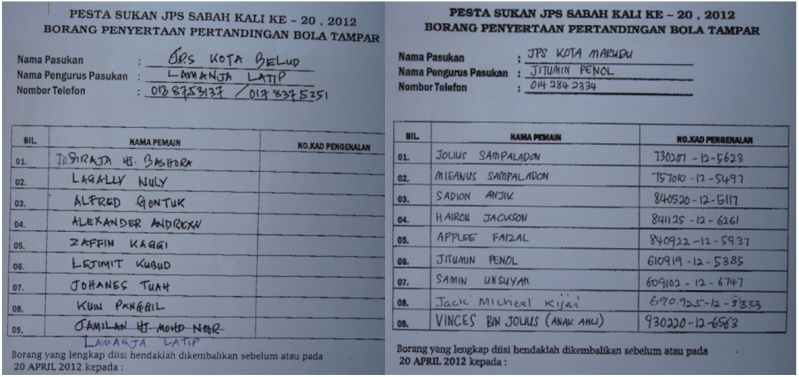 PESTA SUKAN JPS SABAH KALI KE – 20 , 2012
BORANG PENYERTAAN PERTANDINGAN BOLA TAMPAR
Nama Pasukan : JPS KOTA BELUD
Nama Pengurus Pasukan : LAMANJA LATIP
Nombor Telefon : 0138753137 / 0178375251
BIL. NAMA PEMAIN NO.KAD PENGENALAN
01. SIRAJA HJ. BASHORA
02. LAGALLY NULY
03. ALFRED GONTUK
04. ALEXANDER ANDREW
05. ZAFFIN KAGGI
06. LEJIMIT KUBUD
07. JOHANES TUAH
08. KUIN PANGGIL
09. JAMILAN HJ MOHD NOOR
LAMANJA LATIP
Borang yang lengkap diisi hendaklah dikembalikan sebelum atau pada
20 APRIL 2012 kepada :
PESTA SUKAN JPS SABAH KALI KE – 20 , 2012
BORANG PENYERTAAN PERTANDINGAN BOLA TAMPAR
Nama Pasukan : JPS KOTA MARUDU
Nama Pengurus Pasukan : JITUMIN PENOL
Nombor Telefon : 014 284 2334
BIL. NAMA PEMAIN NO.KAD PENGENALAN
01. JOLIUS SAMPALADON 730207-12-5623
02. MIEANUS SAMPALADON 757010-12-5497
03. SADION ANJIK 840520-12-5117
04. HAIRON JACKSON 841125-12-6261
05. APPLEE FAIZAL 840922-12-5937
06. JITUMIN PENOL 610919-12-5385
07. SAMIN UKSUYAN 609102-12-6747
08. Jack Micheal Kijai 690925-12-5333
09. VINCES BIN JOLIUS (ANAK AHLI) 930220-12-6563
Borang yang lengkap diisi hendaklah dikembalikan sebelum atau pada
20 APRIL 2012 kepada :